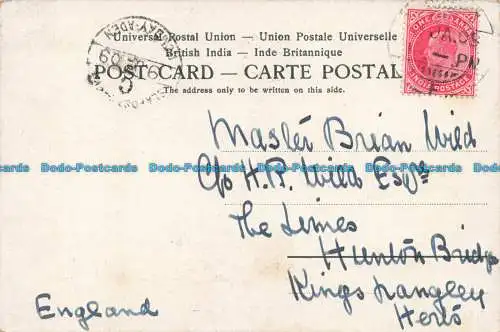 Universal Postal Union — Union Postale Universelle
British India — Inde Britannique
POST CARD — CARTE POSTALE
The address only to be written on this side.
ONE ANNA
INDIA POSTAGE
BOMBAY-ADEN
09
PM
Master Brian Wild
C/o H.P. Wild Esqre
The Limes
Hunton Bridge
Kings Langley
Herts
England
Dodo-Postcards Dodo-Postcards Dodo-Postcards Dodo-Postcards